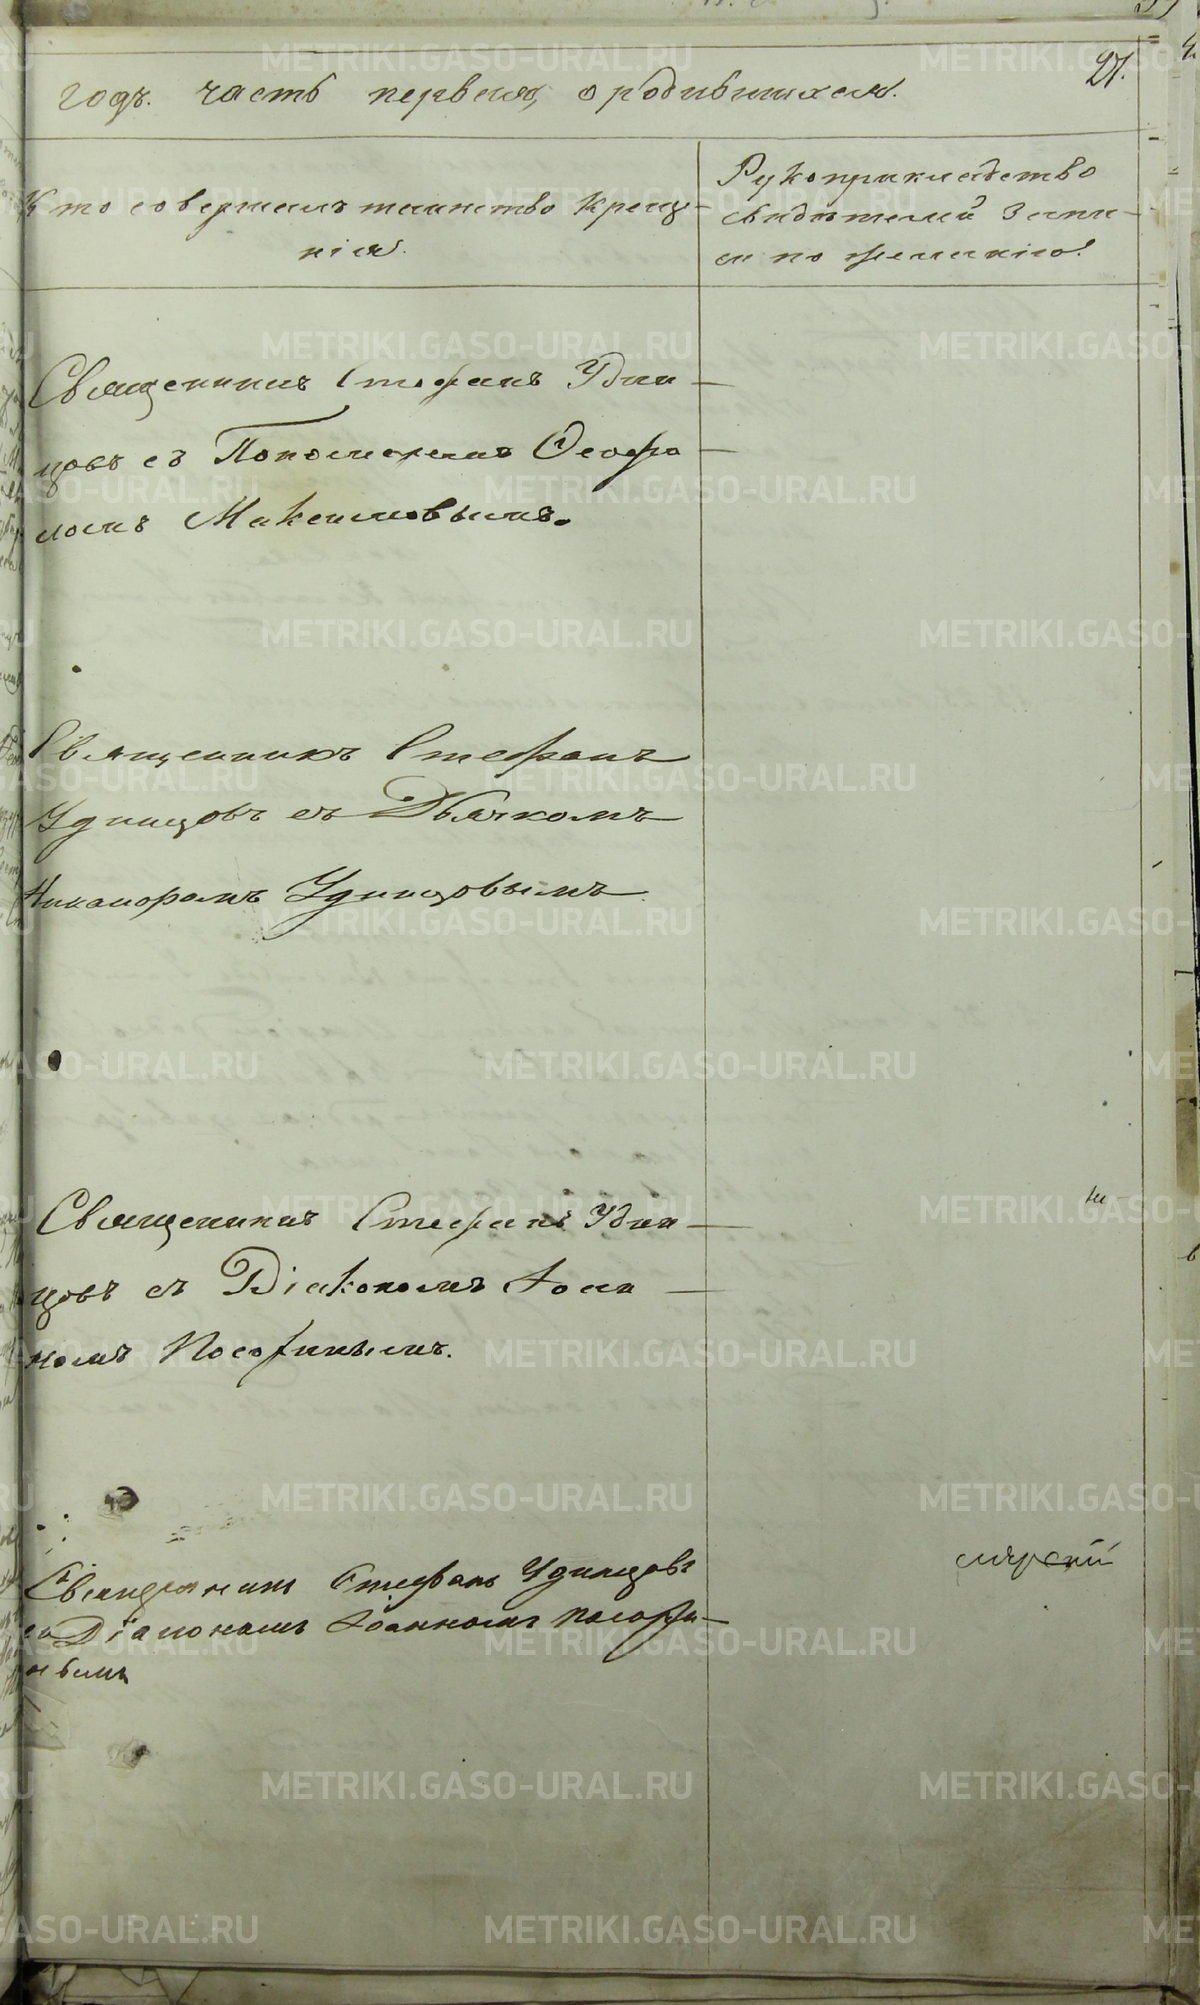 27.
годъ. часть первая, о родившихся.
Кто совершалъ таинство креще-
нія.
Рукоприкладство
свидѣтелей запи-
си по желанію.
Священникъ Стефанъ Удин-
цовъ съ Пономаремъ Ѳеофи-
ломъ Максимовымъ.
Священникъ Стефанъ
Удинцовъ съ Дьячкомъ
Никаноромъ Удинцовымъ
Священникъ Стефанъ Удин-
цовъ съ Діакономъ Іоан-
номъ Посохинымъ.
Священникъ Стефанъ Удинцовъ
съ Діакономъ Іоанномъ Посохи-
нымъ
METRIKI.GASO-URAL.RU